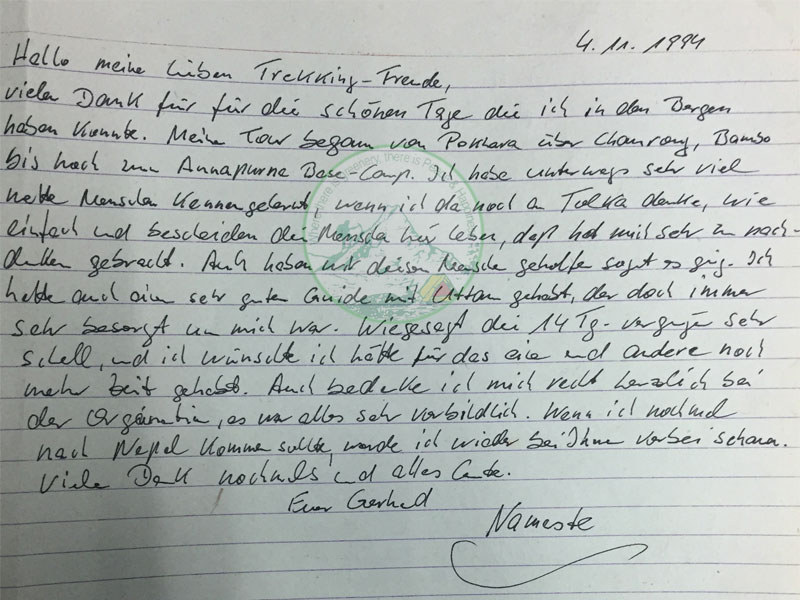 4. 11. 1994
Hallo meine lieben Trekking-Freude,
vielen Dank für für die schönen Tage die ich in den Bergen
haben konnte. Meine Tour begann von Pokhara über Chomrong, Bambo
bis hoch zum Annapurna Base-Camp. Ich habe unterwegs sehr viel
nette Menschen kennengelernt, wenn ich da noch an Tolka denke, wie
einfach und bescheiden die Menschen hier leben, daß hat mich sehr zu nach-
denken gebracht. Auch haben wir diesen Menschen geholfen sogut es ging. Ich
hatte auch ein sehr guten Guide mit Uttam gehabt, der doch immer
sehr besorgt um mich war. Wiegesagt die 14 Tg. vergingen sehr
schell, und ich wünschte ich hätte für das eine und andere noch
mehr Zeit gehabt. Auch bedanke ich mich recht herzlich bei
der Organisation, es war alles sehr vorbildlich. Wenn ich nochmal
nach Nepal kommen sollte, werde ich wieder bei Ihnen vorbei schauen.
Viele Dank nochmals und alles Gute.
Euer Gerhard
Namaste